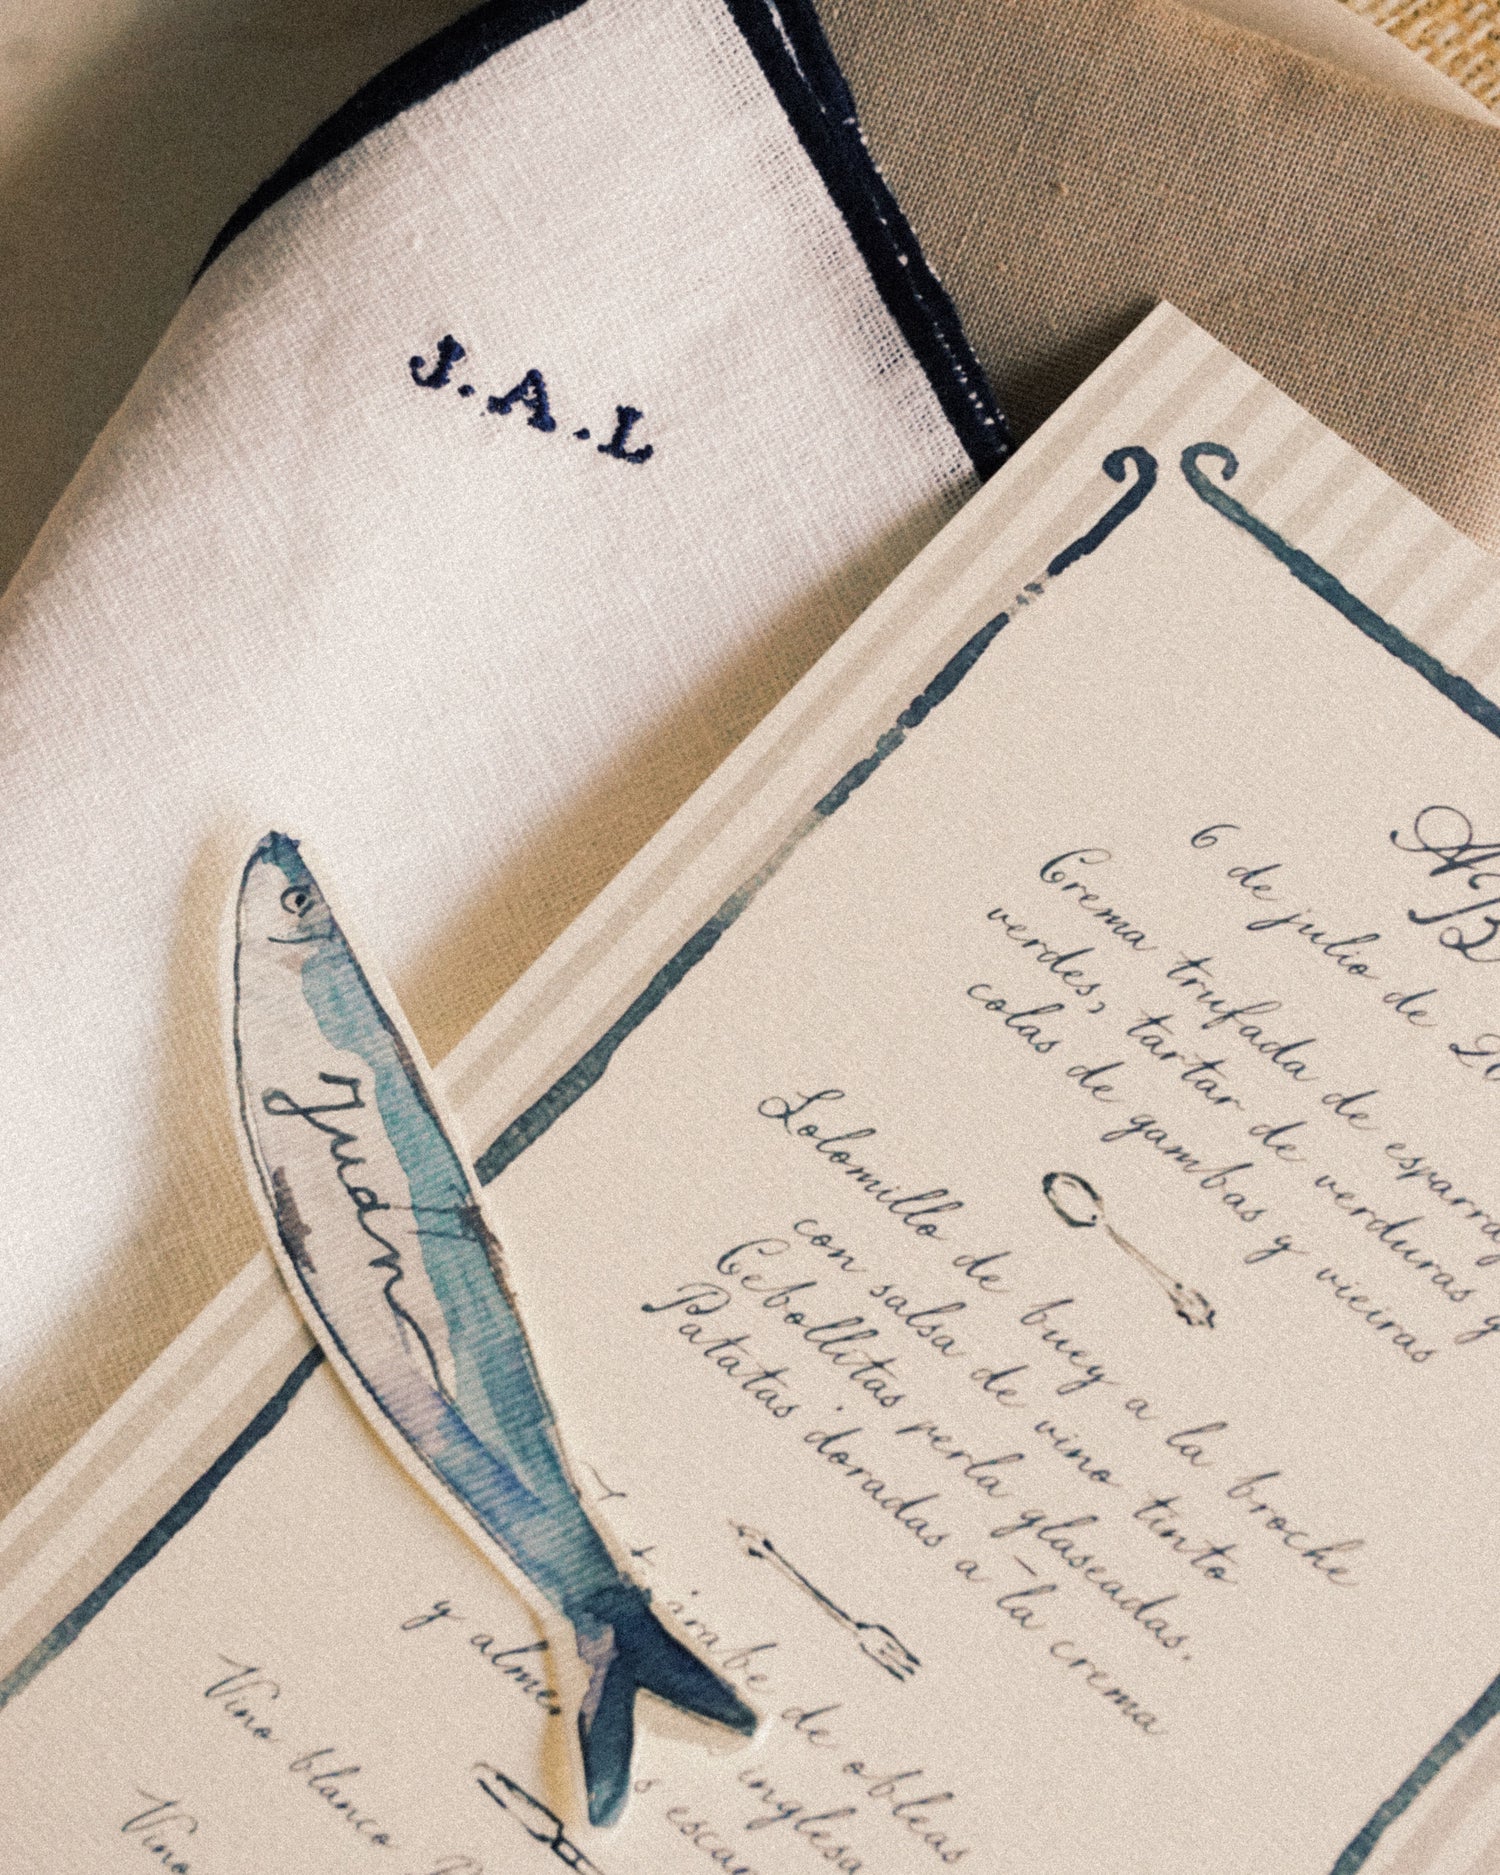 J.A.L
Juan
A
B
6 de julio de
Crema trufada de
verdes, tartar de verduras y
colas de gambas y vieiras
Lolomillo de buey a la broche
con salsa de vino tinto
Cebollitas perla glaseadas.
Patatas doradas a la crema
de obleas
y inglesa
Vino blanco
Vino